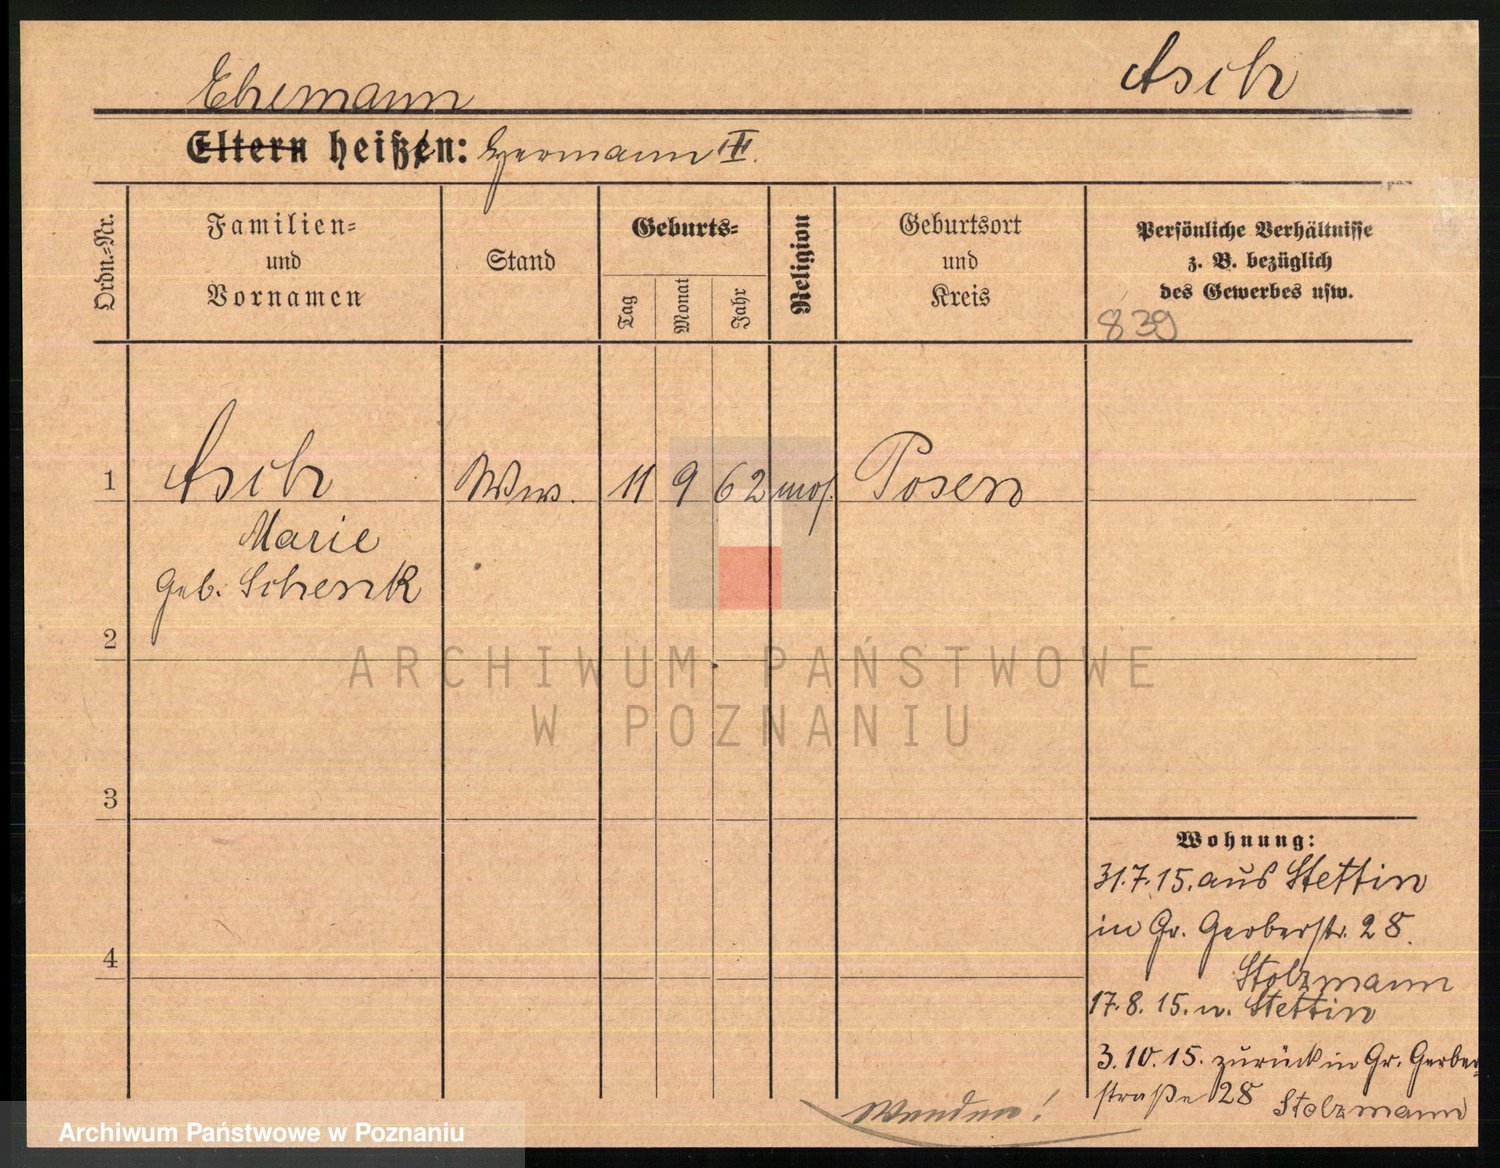 Ehemann
Asch
Eltern heißen: Hermann III.
Ordn.-Nr.
Familien-
und
Vornamen
Stand
Geburts-
Tag
Monat
Jahr
Religion
Geburtsort
und
Kreis
Persönliche Verhältnisse
z. B. bezüglich
des Gewerbes usw.
839
1
Asch
Marie
geb. Schenk
Ww.
11
9
62
mos.
Posen
2
3
4
Wohnung:
31.7.15. aus Stettin
in Gr. Gerberstr. 28.
Stolzmann
17.8.15. n. Stettin
3.10.15. zurück in Gr. Gerber-
straße 28 Stolzmann
Wenden!
ARCHIWUM PAŃSTWOWE
W POZNANIU
Archiwum Państwowe w Poznaniu